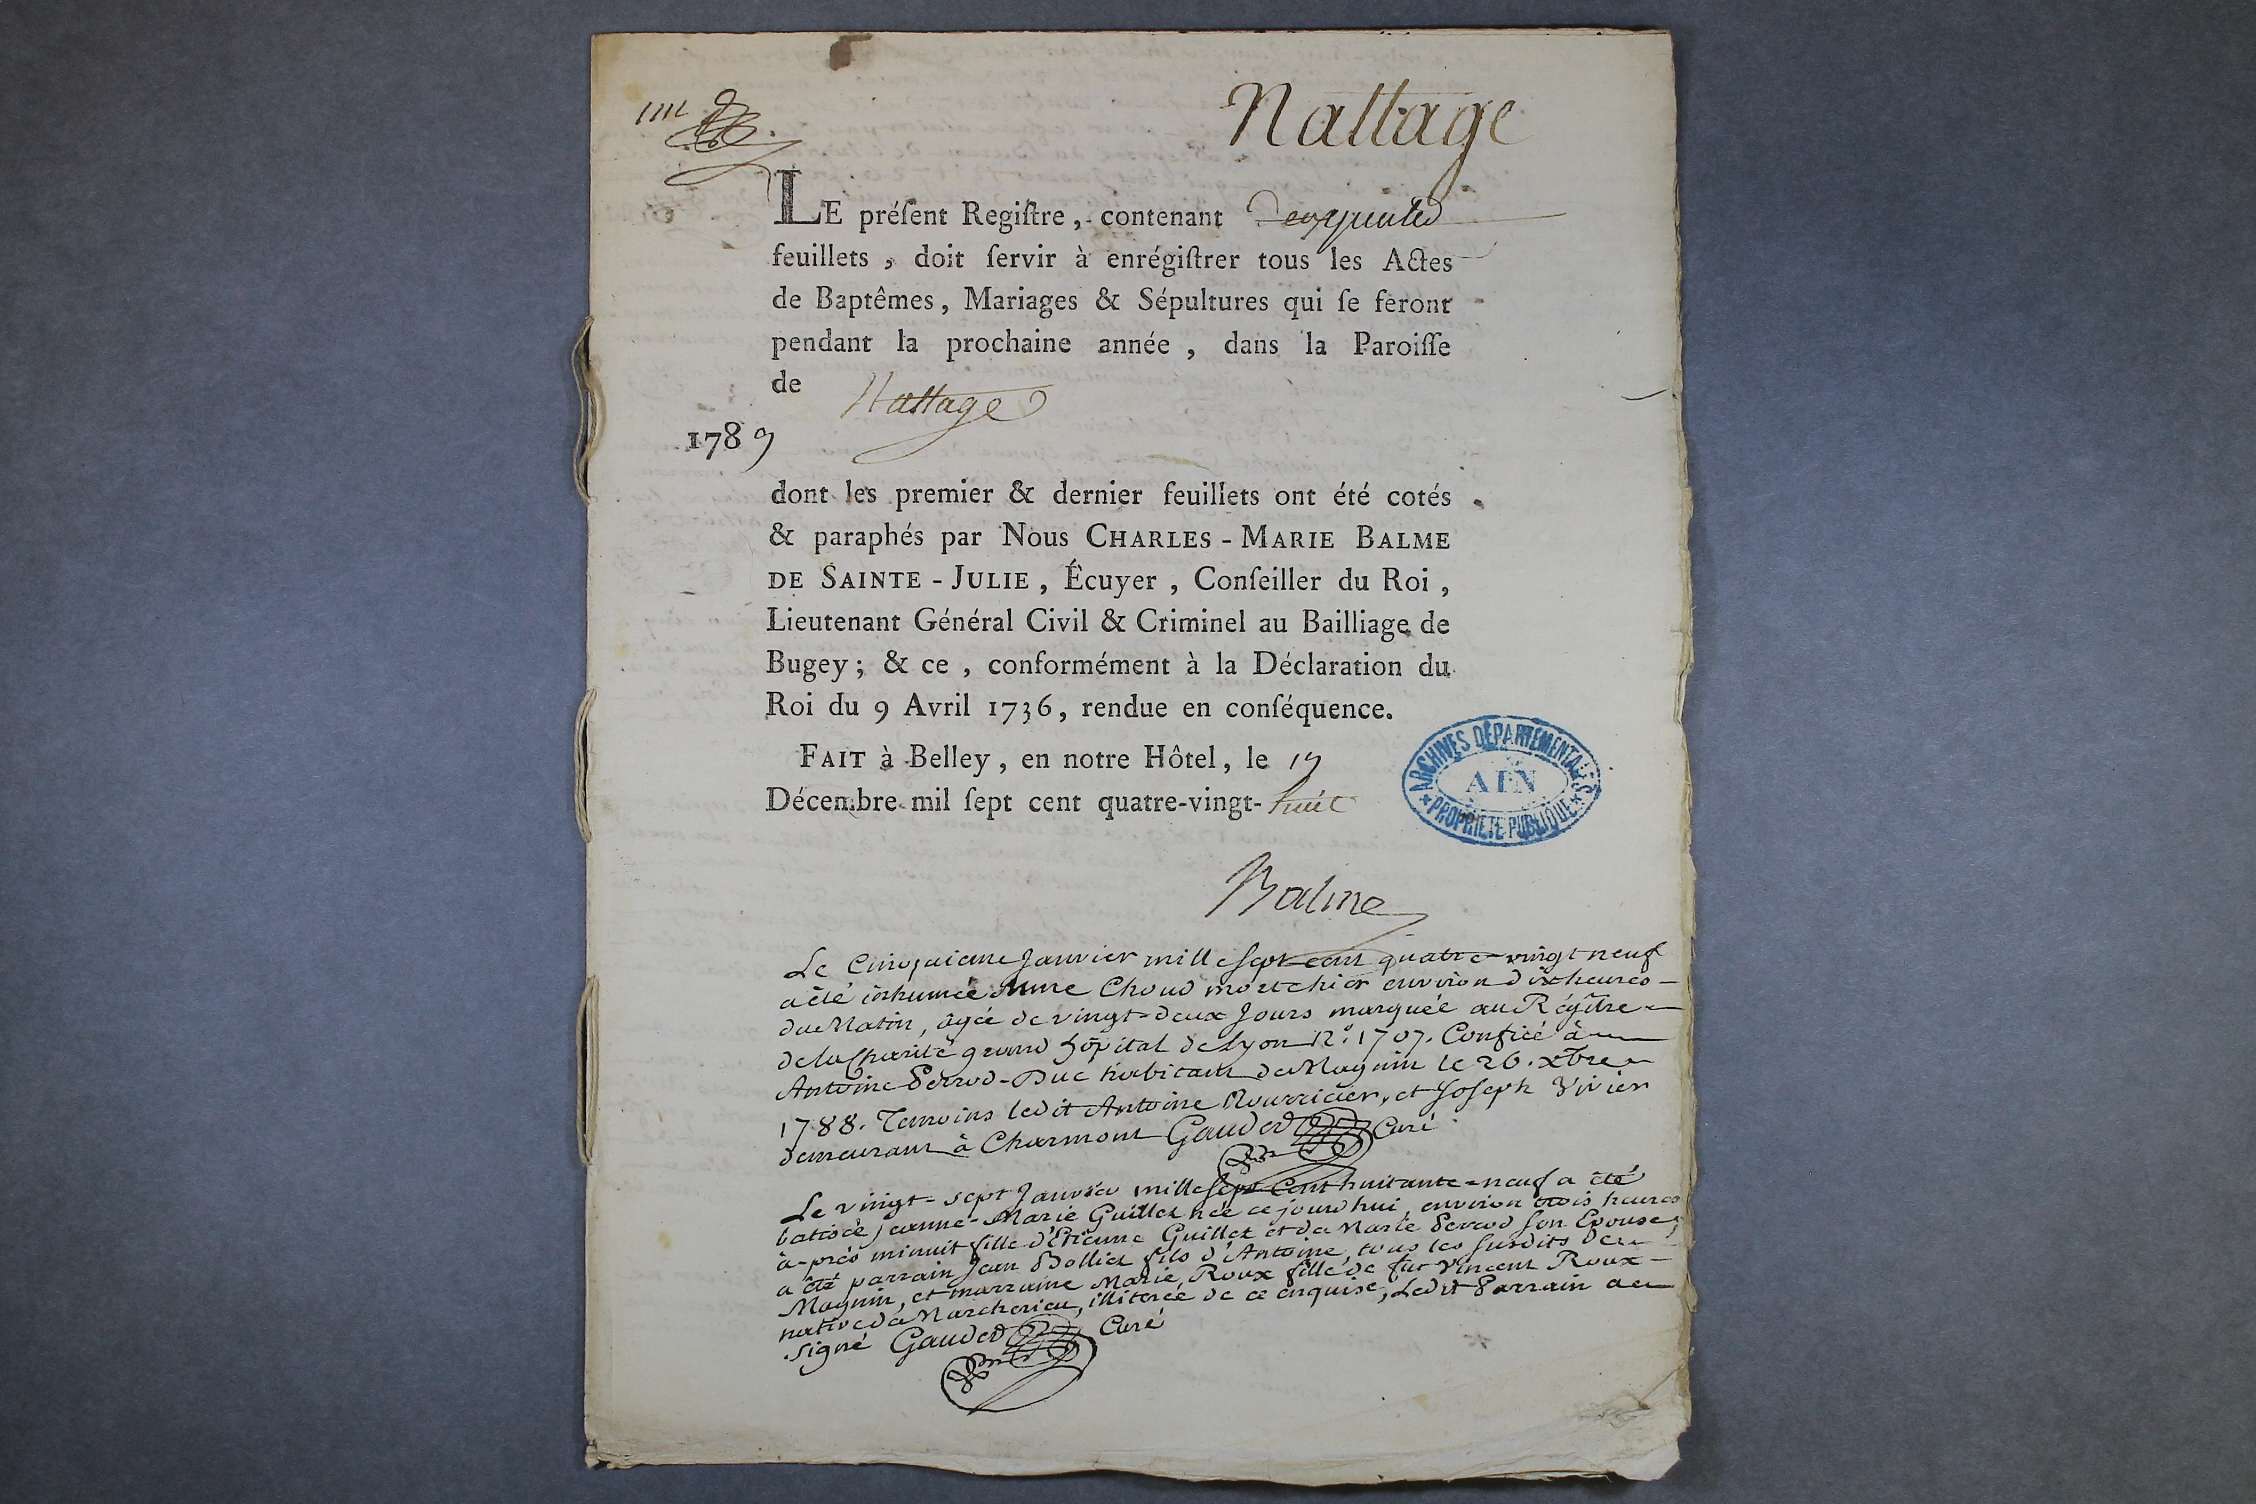 Nattage
LE préſent Regiſtre, contenant
feuillets, doit ſervir à enrégiſtrer tous les Actes
de Baptêmes, Mariages & Sépultures qui ſe feront
pendant la prochaine année, dans la Paroiſſe
de Nattage
1789
dont les premier & dernier feuillets ont été cotés
& paraphés par Nous CHARLES-MARIE BALME
DE SAINTE-JULIE, Écuyer, Conſeiller du Roi,
Lieutenant Général Civil & Criminel au Bailliage de
Bugey; & ce, conformément à la Déclaration du
Roi du 9 Avril 1736, rendue en conſéquence.
FAIT à Belley, en notre Hôtel, le
Décembre mil ſept cent quatre-vingt-huit
ARCHIVES DÉPARTEMENTALES
AIN
* PROPRIÉTÉ PUBLIQUE *
Balme
Le Cinquieme Janvier mille sept cent quatre-vingt neuf
a été inhumée Anne Choud morte hier environ dix heures
du Matin, âgée de vingt-deux Jours marquée au Régître
de la Charité grand hôpital de Lyon N.º 1707. Confiée à
Antoine Perrod-Duc habitant de Magnin le 26. xbre
1788. Temoins ledit Antoine Nourricier, et Joseph Vivier
demeurant à Charmont Gauded Curé
Le vingt-sept Janvier mille sept cent huitante-neuf a été
batisée Jeanne-Marie Guillet née ce jourd'hui, environ trois heures
à-près minuit fille d'Etienne Guillet et de Marie Perrod son Epouse;
a été parrain Jean Bolliet fils d'Antoine, tous les susdits de
Magnin, et marraine Marie Roux fille de fut Vincent Roux
native de Marcherieu, illiterée de ce enquise, Ledit Parrain a
signé Gauded Curé